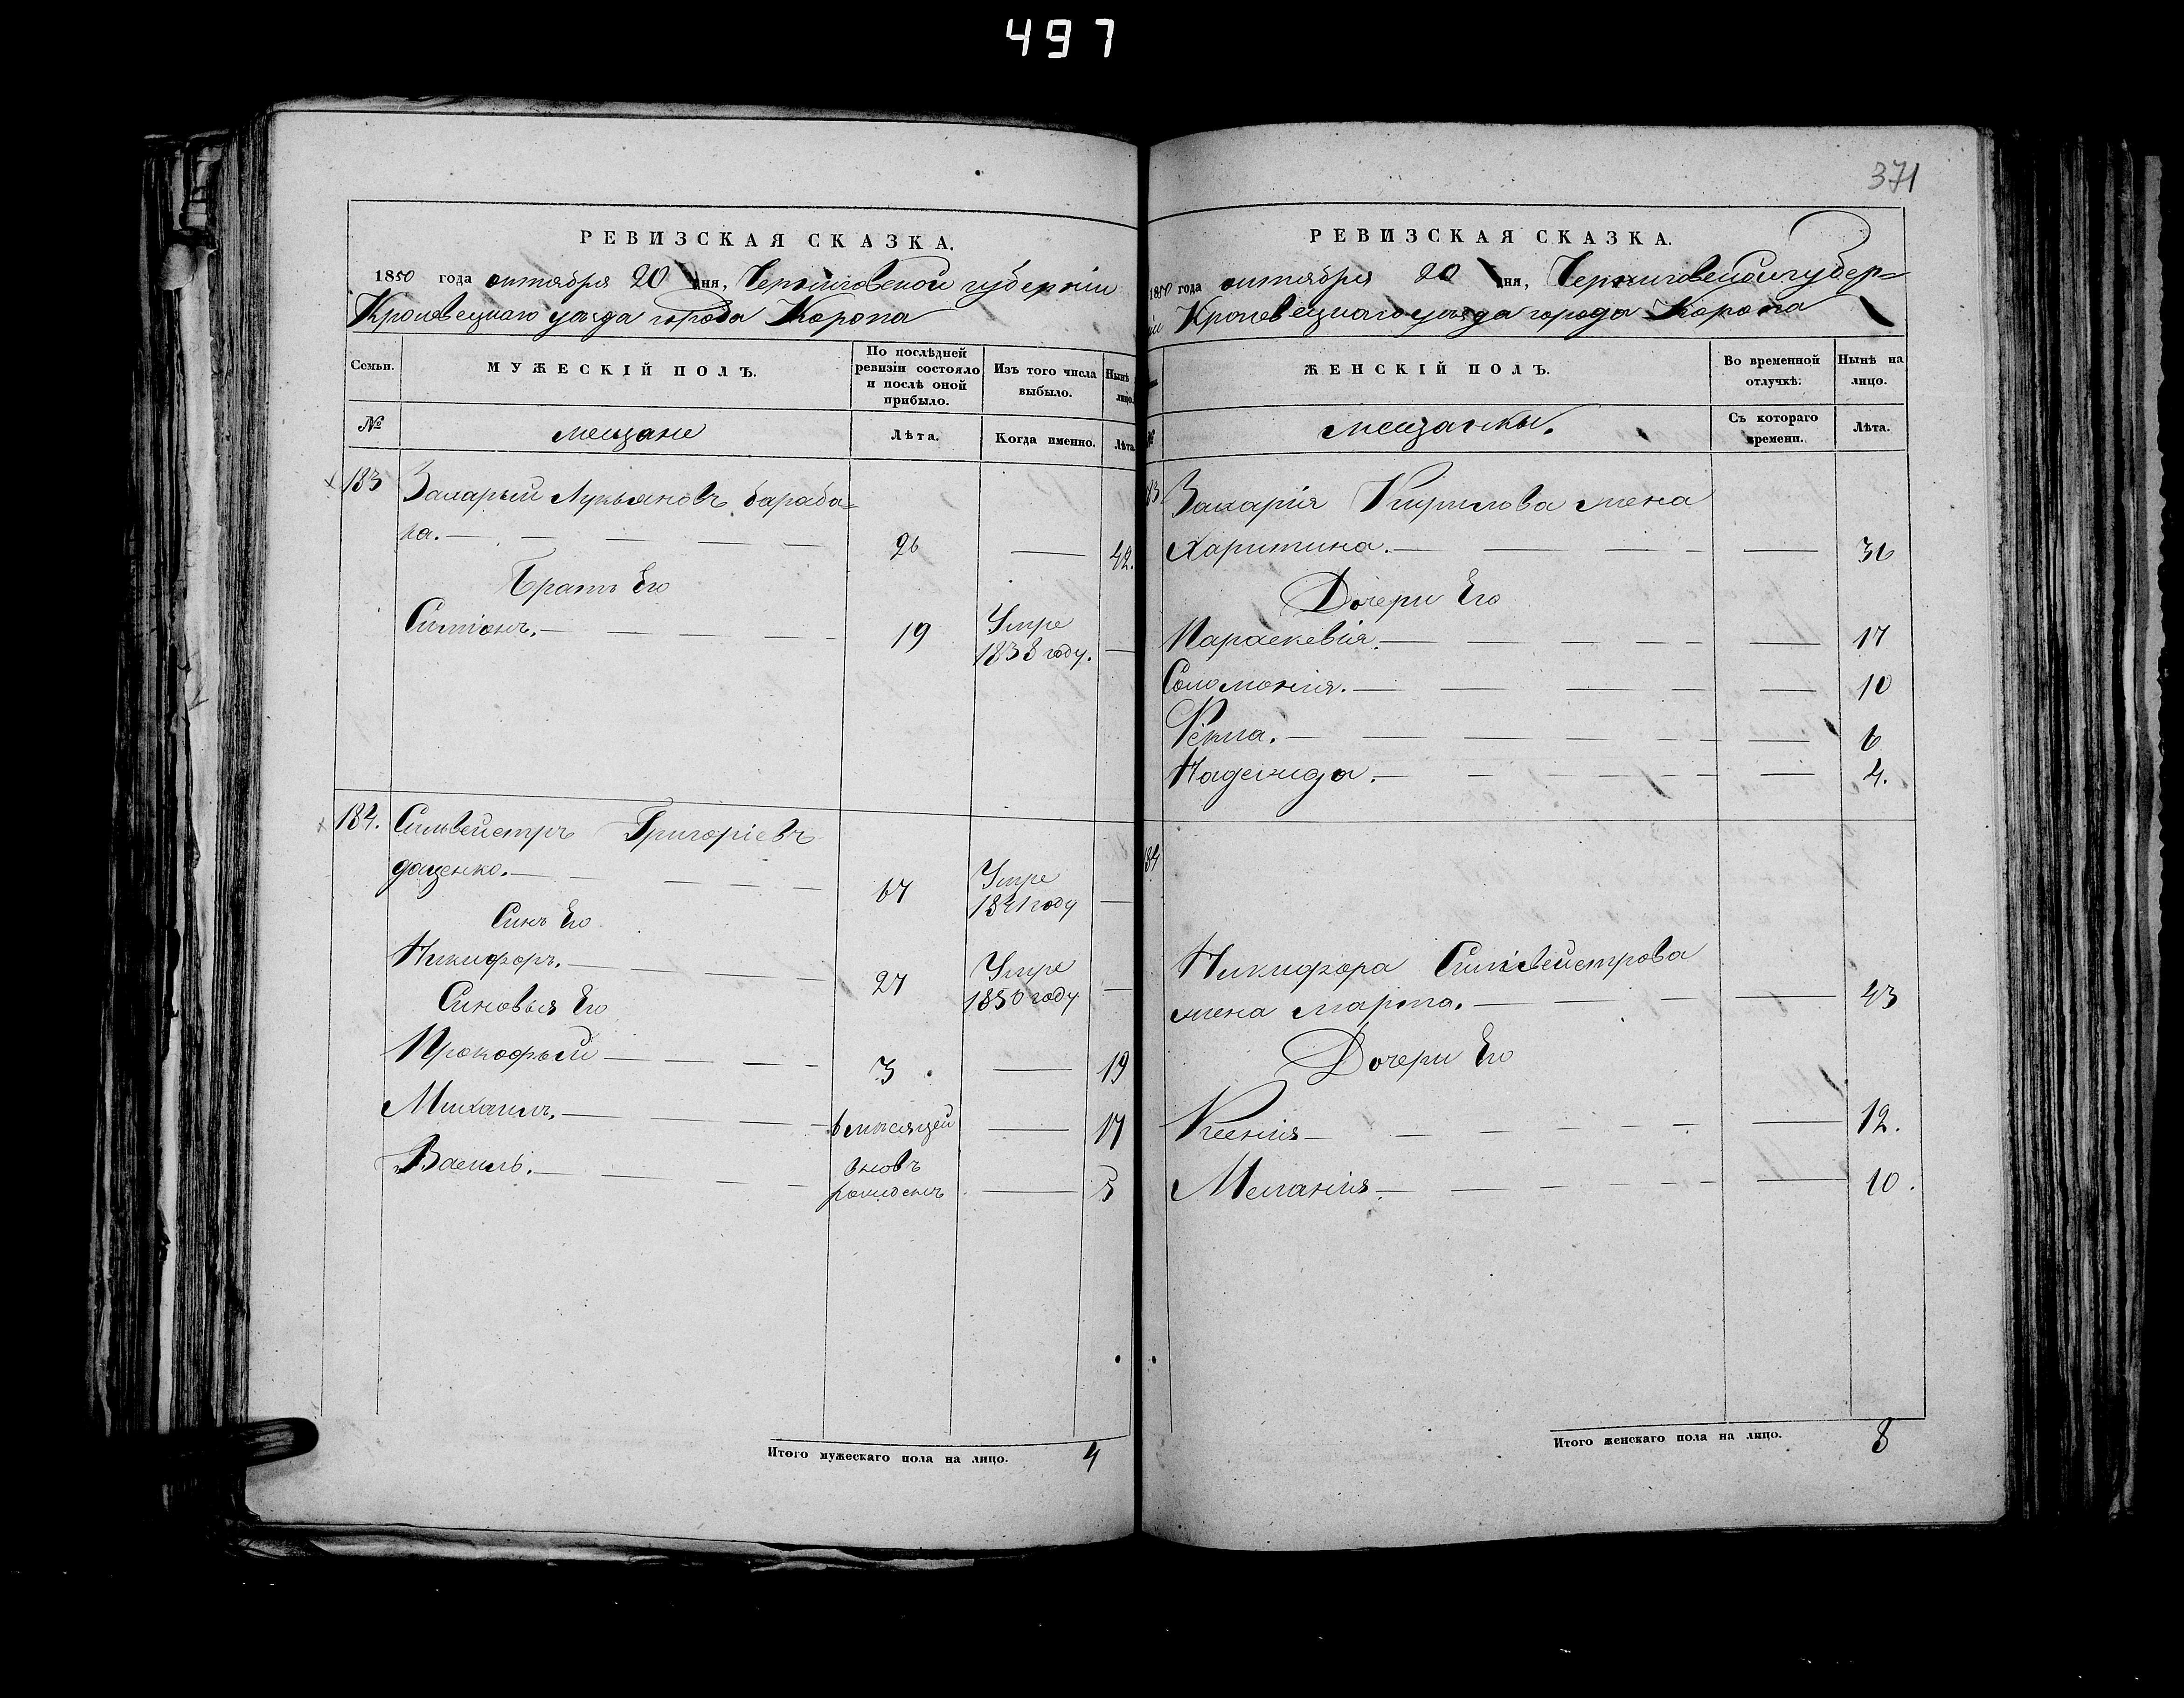 497
371
РЕВИЗСКАЯ СКАЗКА.
1850 года октября 20 дня, Черниговской губерніи
Кролевецкаго уезда города Коропа
Семьи.
МУЖЕСКІЙ ПОЛЪ.
По послѣдней ревизіи состояло и послѣ оной прибыло.
Изъ того числа выбыло.
Нынѣ лицо.
№
мещане
Лѣта.
Когда именно.
Лѣта
183 Захарый Лукьяновъ бараба=
ка. 26 — 42.
Братъ Его
Симіонъ. 19 Умре 1838 году. —
184. Сильвейстръ Григоріевъ
даценко. 67 Умре 1841 году —
Синъ Его
Никифоръ. 27 Умре 1850 году —
Синовья Его
Прокофый 3 — 19
Михаилъ. 6 мысяцей — 17
Василь. вновъ рожденъ — 5
Итого мужескаго пола на лицо. 4
РЕВИЗСКАЯ СКАЗКА.
1850 года октября 20 дня, Черниговской губер=
іи Кролевецкаго уезда города Коропа
ЖЕНСКІЙ ПОЛЪ.
Во временной отлучкѣ.
Нынѣ на лицо.
№
мещанкы.
Съ котораго времени.
Лѣта.
83 Захарія Кирилова жена
Харитина. — 36
Дочери Его
Параскевія. — 17
Соломонія. — 10
Фекла. — 6
Надежда. — 4.
84
Никифора Сильвейстрова
жена марта. — 43
Дочери Его
Ксенія — 12.
Меланія. — 10.
Итого женскаго пола на лицо. 8